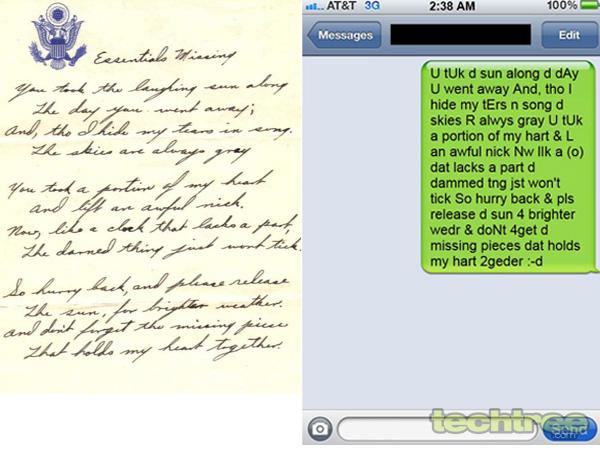 Essentials Missing
You took the laughing sun along
The day you went away;
And, tho I hide my tears in song.
The skies are always gray
You took a portion of my heart
And left an awful nick.
Now, like a clock that lacks a part,
The darned thing just wont tick.
So hurry back, and please release
The sun, for brighter weather.
And don't forget the missing piece
That holds my heart together.
AT&T 3G 2:38 AM 100%
Messages Edit
U tUk d sun along d dAy
U went away And, tho I
hide my tErs n song d
skies R alwys gray U tUk
a portion of my hart & L
an awful nick Nw lIk a (o)
dat lacks a part d
dammed tng jst won't
tick So hurry back & pls
release d sun 4 brighter
wedr & doNt 4get d
missing pieces dat holds
my hart 2geder :-d
techtree
.com
Send